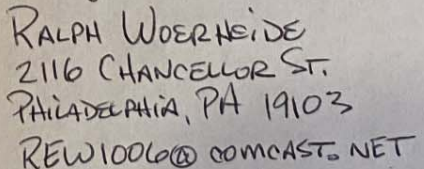 RALPH WOERHEIDE
2116 CHANCELLOR ST.
PHILADELPHIA, PA 19103
REW1006@COMCAST.NET